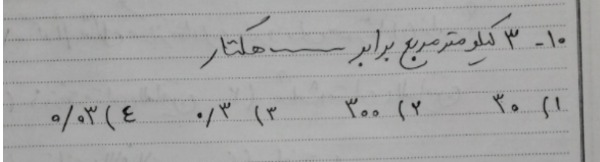 ۱۰- ۳ کیلومتر مربع برابر ــــــ هکتار
۱) ۳۰ ۲) ۳۰۰ ۳) ۰/۳ ۴) ۰/۰۳